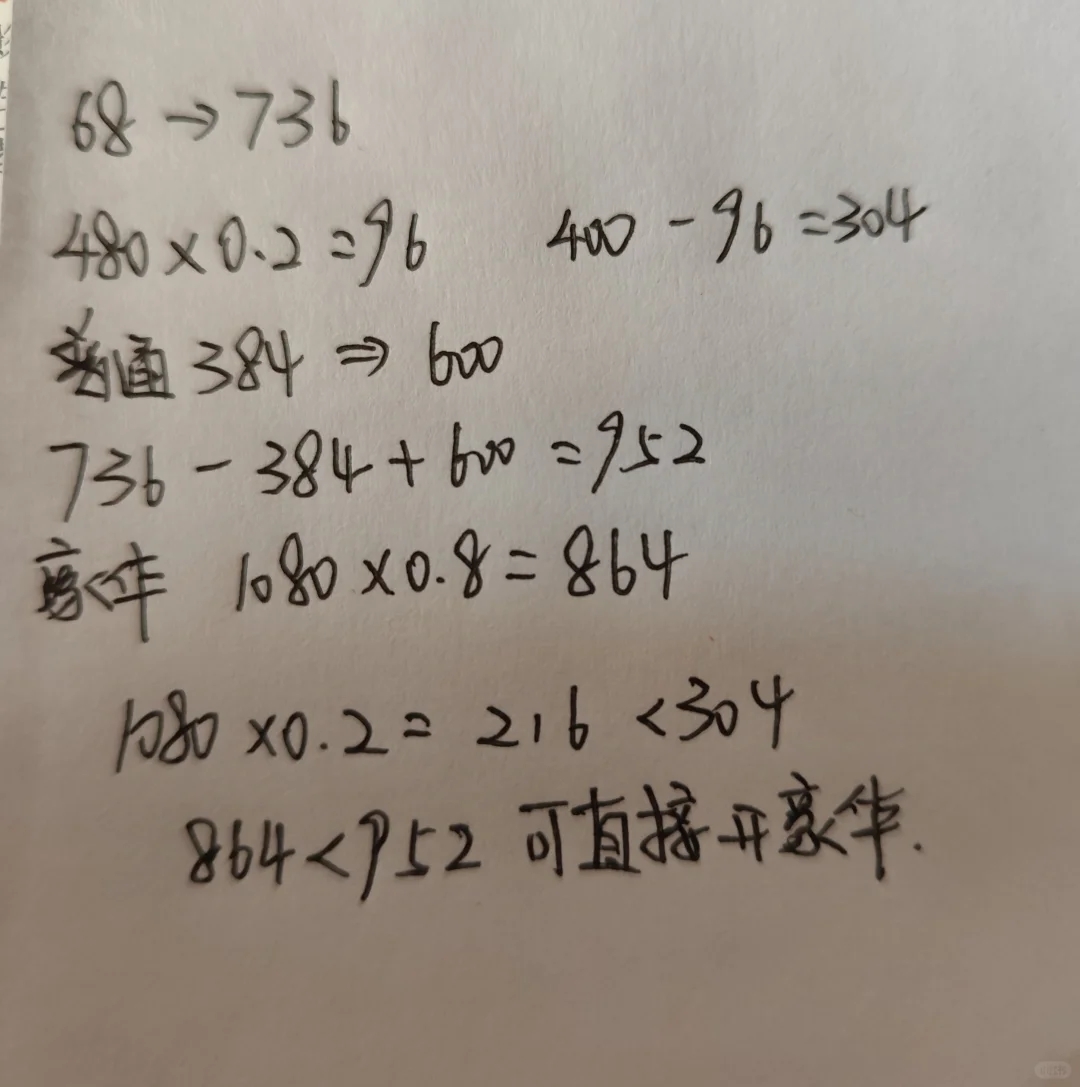 68 → 736
480 × 0.2 = 96 400 - 96 = 304
普通 384 ⇒ 600
736 - 384 + 600 = 952
豪华 1080 × 0.8 = 864
1080 × 0.2 = 216 < 304
864 < 952 可直接开豪华.
小红书